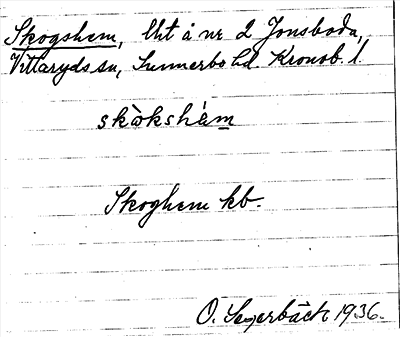 Skogshem, lht å nr 2 Jonsboda,
Vittaryds sn, Sunnerbo hd. Kronob. l.
skòkshèm
Skoghem kb.
O. Segerbäck 1936.